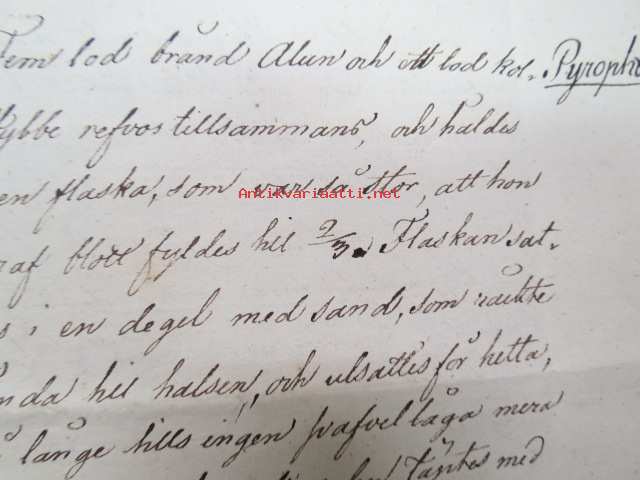 Fem lod bränd Alun och ett lod kol- Pyropho
stybbe refvos tillsammans, och häldes
en flaska, som var så stor, att hon
raf blott fyldes till 2/3. Flaskan sat-
s i en degel med sand, som räckte
nda till halsen, och utsattes för hetta,
länge tills ingen svafvellåga mera
täptes med
Antikvariaatti.net